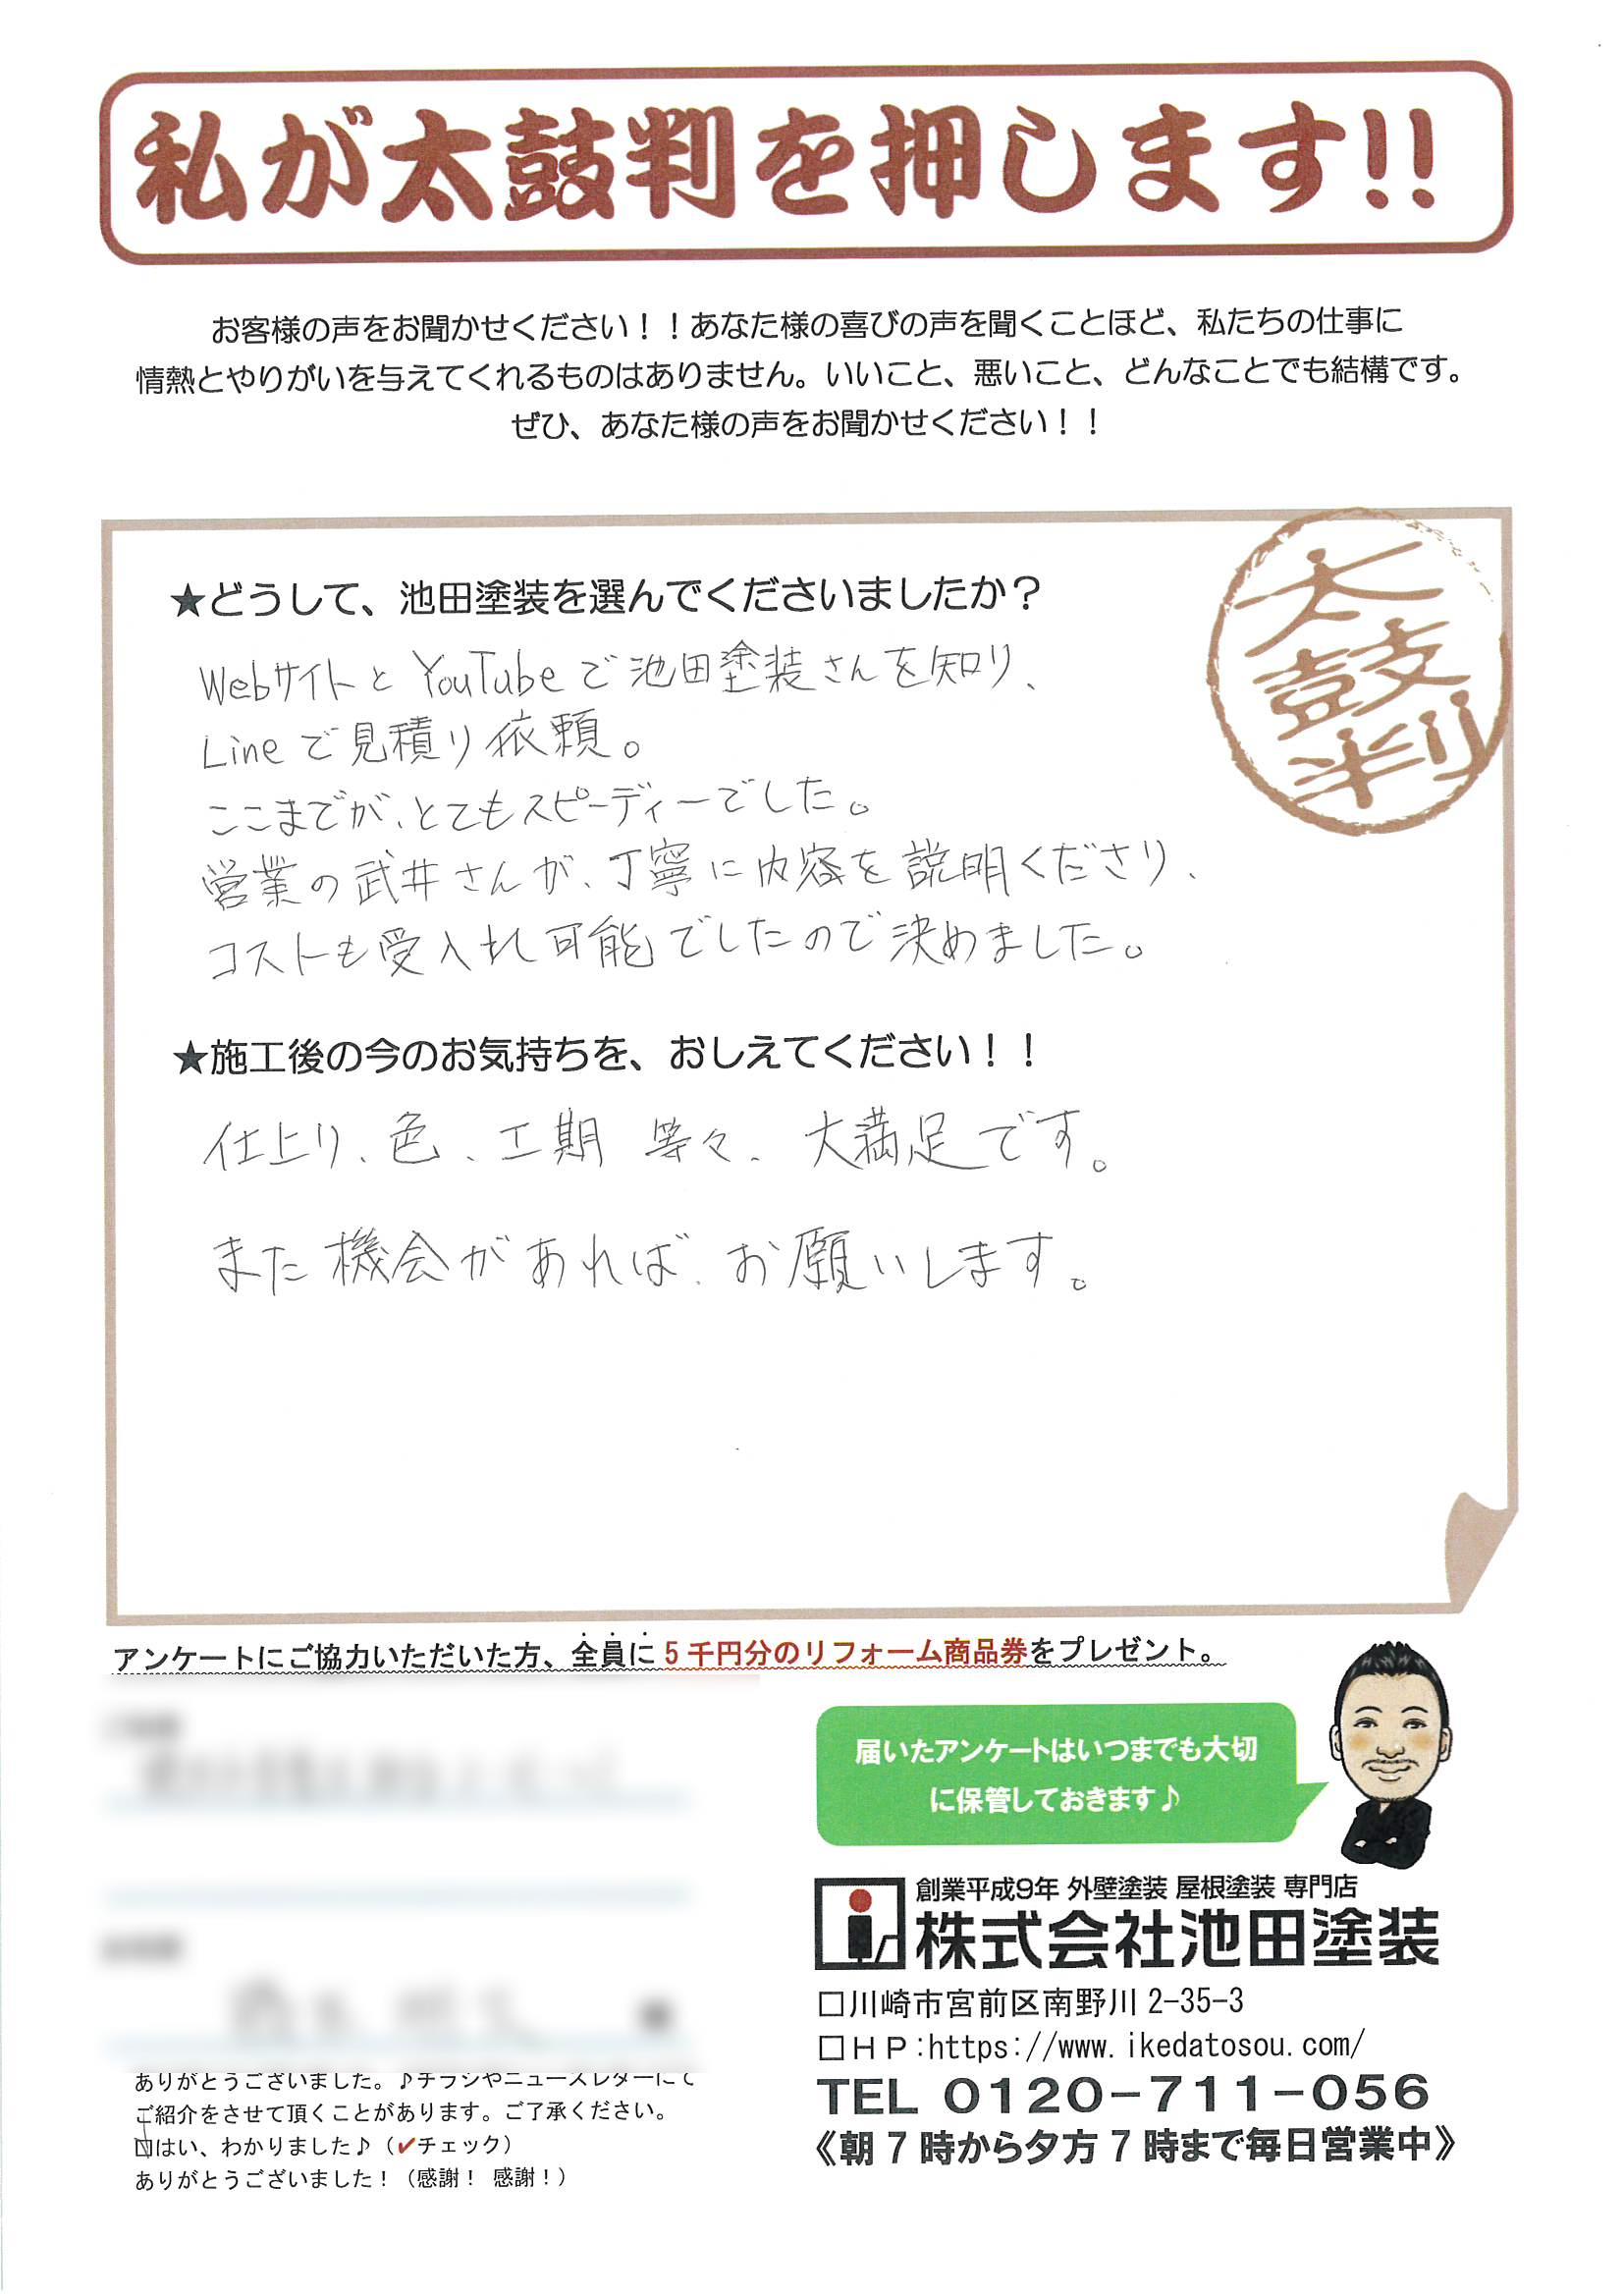 私が太鼓判を押します!!
お客様の声をお聞かせください！！あなた様の喜びの声を聞くことほど、私たちの仕事に
情熱とやりがいを与えてくれるものはありません。いいこと、悪いこと、どんなことでも結構です。
ぜひ、あなた様の声をお聞かせください！！
太鼓判
★どうして、池田塗装を選んでくださいましたか？
Webサイトと YouTubeで池田塗装さんを知り、
Lineで見積り依頼。
ここまでが、とてもスピーディーでした。
営業の武井さんが、丁寧に内容を説明くださり、
コストも受入れ可能でしたので決めました。
★施工後の今のお気持ちを、おしえてください！！
仕上り、色、工期 等々、大満足です。
また機会があれば、お願いします。
アンケートにご協力いただいた方、全員に5千円分のリフォーム商品券をプレゼント。
届いたアンケートはいつまでも大切
に保管しておきます♪
創業平成9年 外壁塗装 屋根塗装 専門店
株式会社池田塗装
□川崎市宮前区南野川2-35-3
□ＨＰ:https://www.ikedatosou.com/
TEL 0120-711-056
《朝7時から夕方7時まで毎日営業中》
ありがとうございました。♪チラシやニュースレターにて
ご紹介をさせて頂くことがあります。ご了承ください。
□はい、わかりました♪（✔チェック）
ありがとうございました！（感謝！ 感謝！）